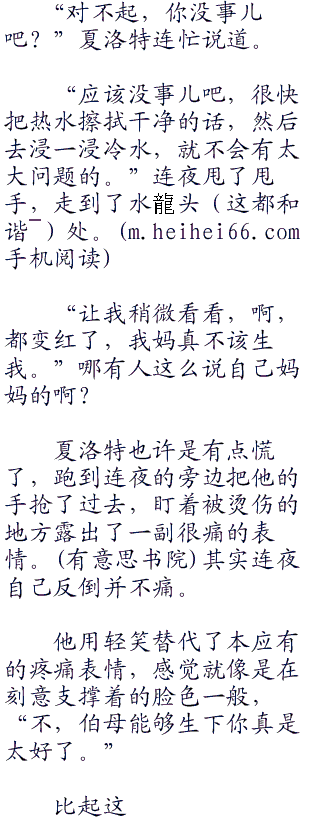 “对不起，你没事儿
吧？”夏洛特连忙说道。
“应该没事儿吧，很快
把热水擦拭干净的话，然后
去浸一浸冷水，就不会有太
大问题的。”连夜甩了甩
手，走到了水龍头（这都和
谐¯）处。(m.heihei66.com
手机阅读)
“让我稍微看看，啊，
都变红了，我妈真不该生
我。”哪有人这么说自己妈
妈的啊？
夏洛特也许是有点慌
了，跑到连夜的旁边把他的
手抢了过去，盯着被烫伤的
地方露出了一副很痛的表
情。(有意思书院)其实连夜
自己反倒并不痛。
他用轻笑替代了本应有
的疼痛表情，感觉就像是在
刻意支撑着的脸色一般，
“不，伯母能够生下你真是
太好了。”
比起这